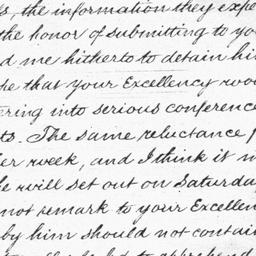 the information they expe
the honor of submitting to yo
d me hitherto to detain hi
he that your Excellency wou
ering into serious conference
ts. The same reluctance
er week, and I think it
he will set out on Saturda
not remark to your Excellen
by him should not contain